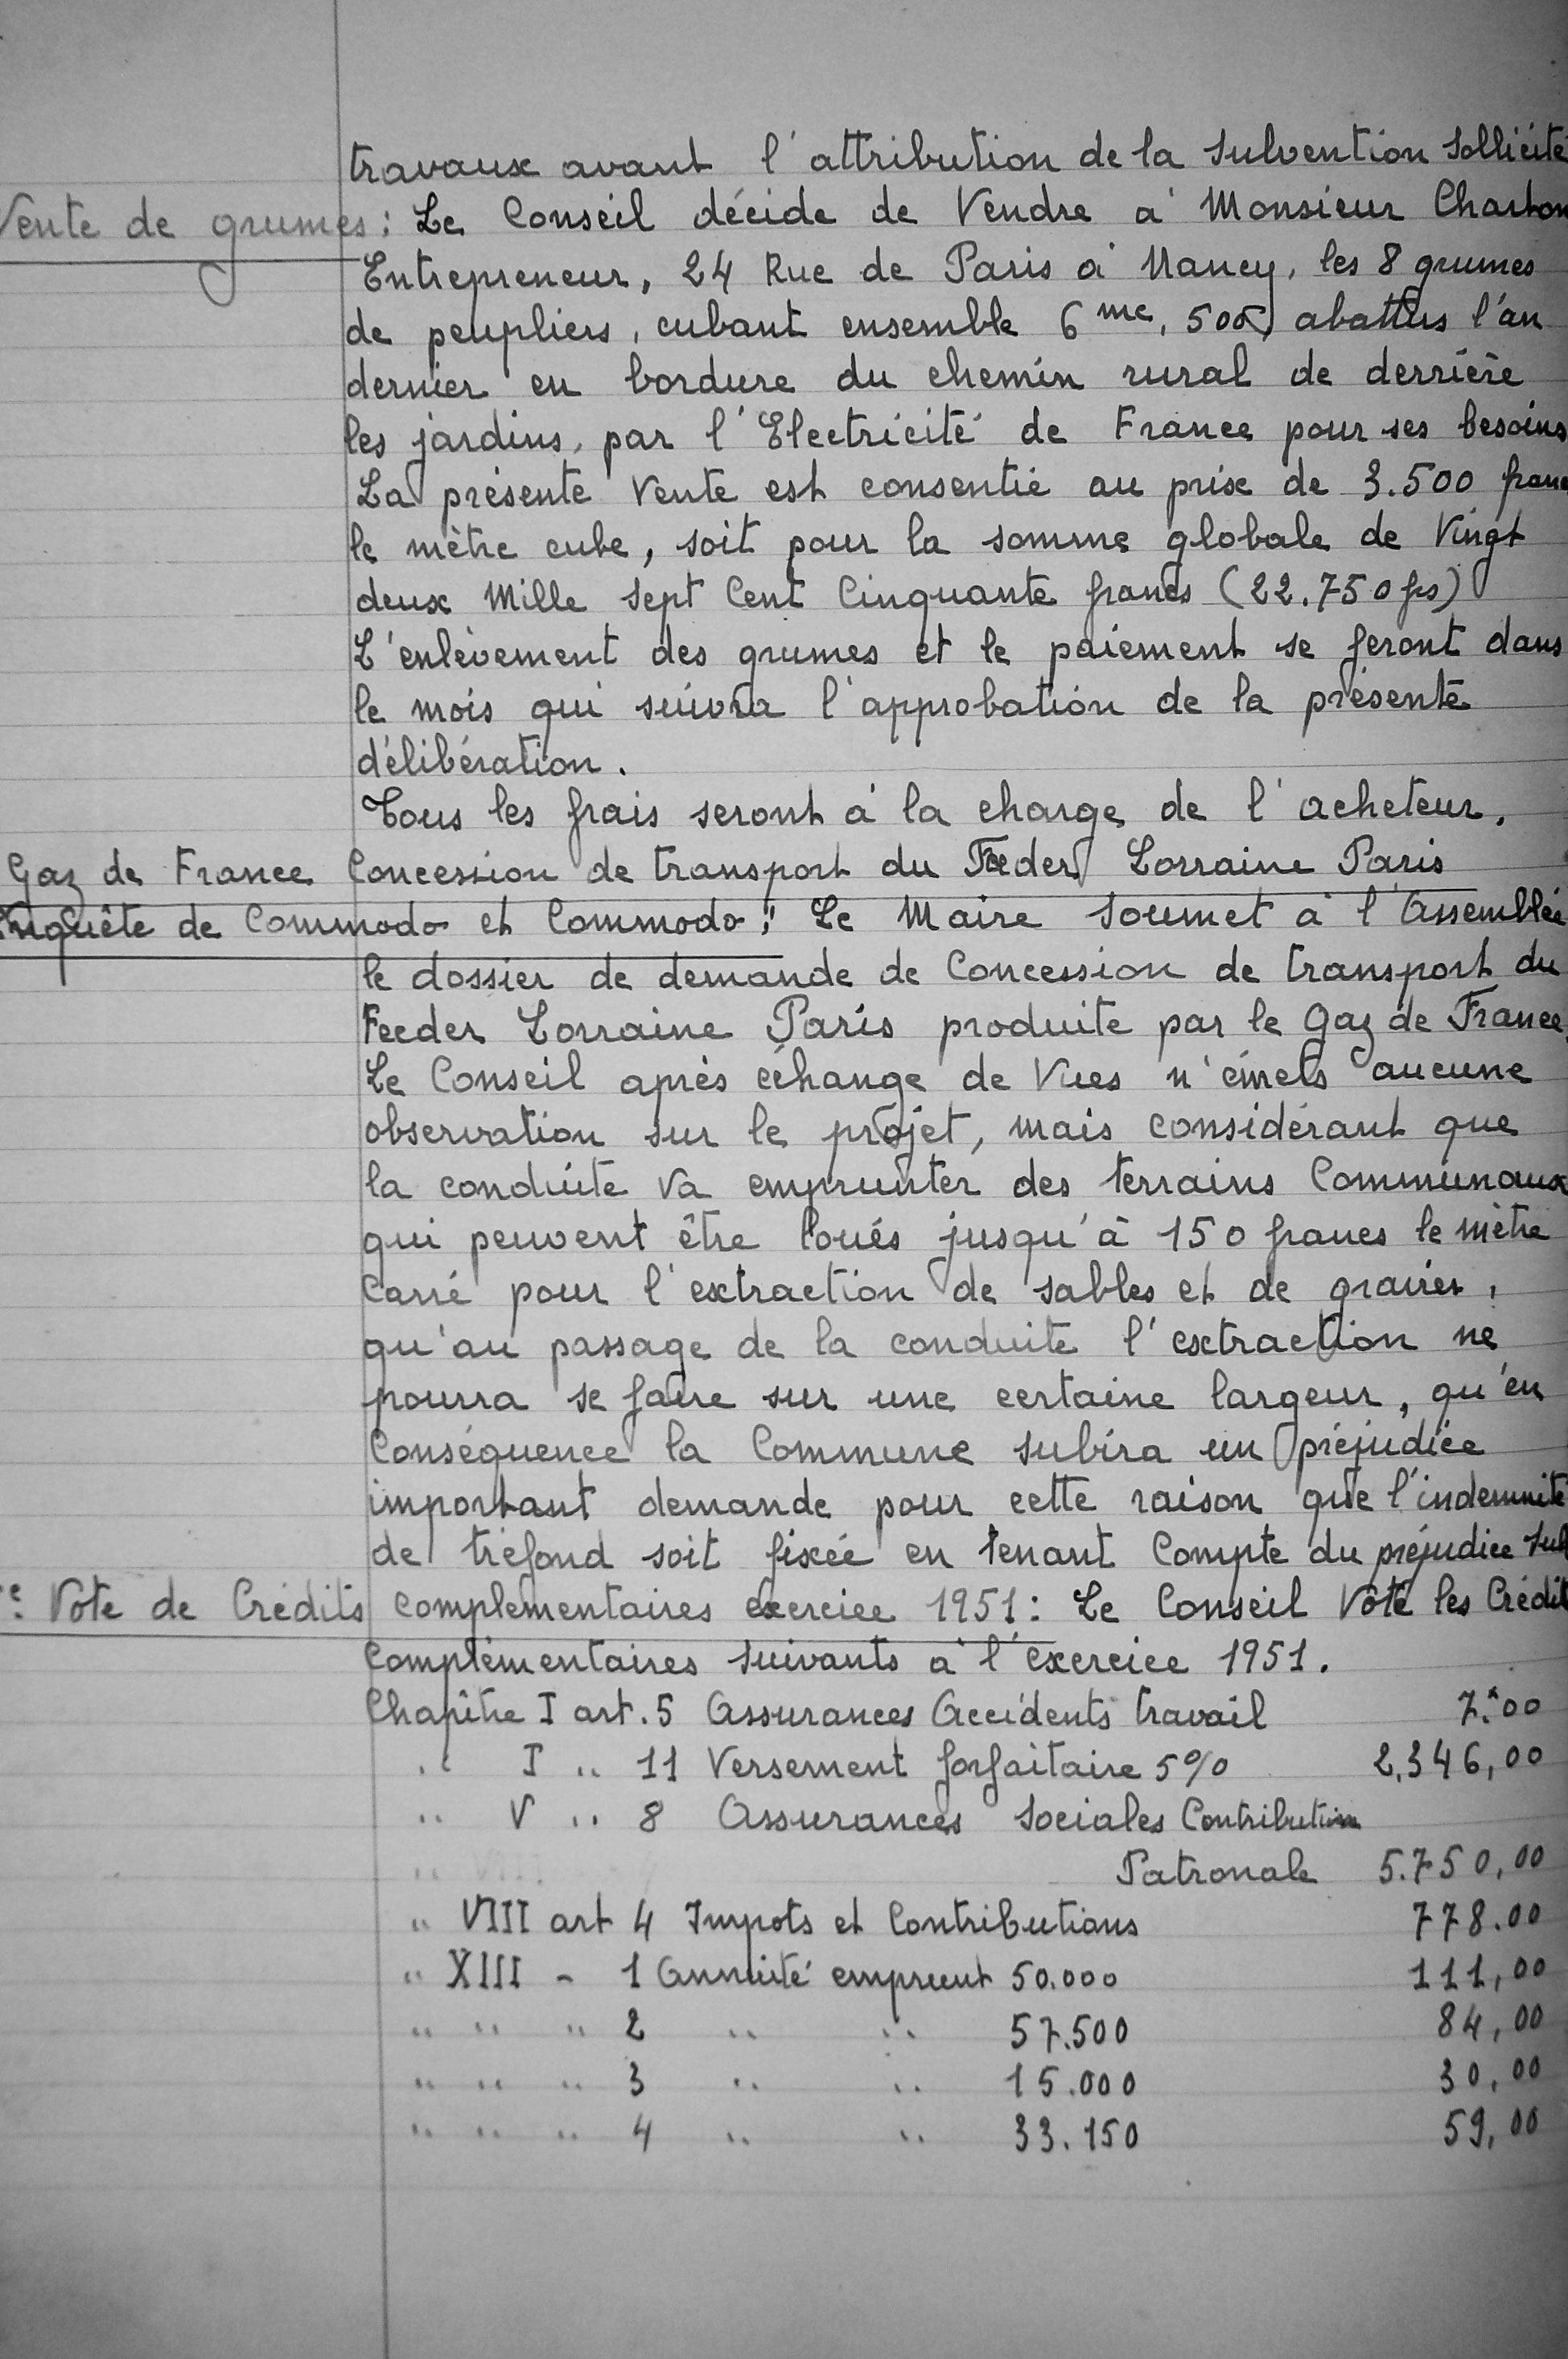 travaux avant l'attribution de la subvention sollicité
Vente de grumes : Le Conseil décide de Vendre à Monsieur Charbon
Entrepreneur, 24 Rue de Paris à Nancy, les 8 grumes
de peupliers, cubant ensemble 6 mc, 500, abattus l'an
dernier en bordure du chemin rural de derrière
les jardins, par l'Electricité de France pour ses besoins
La présente Vente est consentie au prix de 3.500 franc
le mètre cube, soit pour la somme globale de Vingt
deux Mille Sept Cent Cinquante francs (22.750 frs)
L'enlèvement des grumes et le paiement se feront dans
le mois qui suivra l'approbation de la présente
délibération.
Tous les frais seront à la charge de l'acheteur.
Gaz de France Concession de transport du Feeder Lorraine Paris
Enquête de Commodo et Commodo : Le Maire soumet à l'Assemblée
le dossier de demande de Concession de transport du
Feeder Lorraine Paris produite par le Gaz de France.
Le Conseil après échange de Vues n'émets aucune
observation sur le projet, mais considérant que
la conduite va emprunter des terrains Communaux
qui peuvent être loués jusqu'à 150 francs le mètre
Carré pour l'extraction de sables et de gravier,
qu'au passage de la conduite l'extraction ne
pourra se faire sur une certaine largeur, qu'en
Conséquence la Commune subira un préjudice
important demande pour cette raison que l'indemnité
de tréfond soit fixée en tenant Compte du préjudice sub
Vote de Crédits complémentaires exercice 1951 : Le Conseil Vote les Crédit
Complémentaires suivants à l'exercice 1951.
Chapître I art. 5 Assurances Accidents travail 7.00
" I " 11 Versement forfaitaire 5% 2.346,00
" V " 8 Assurances Sociales Contribution
Patronale 5.750,00
" VIII art 4 Impots et Contributions 778.00
" XIII - 1 Annuité emprunt 50.000 111,00
" " " 2 " " 57.500 84,00
" " " 3 " " 15.000 30,00
" " " 4 " " 33.150 59,00